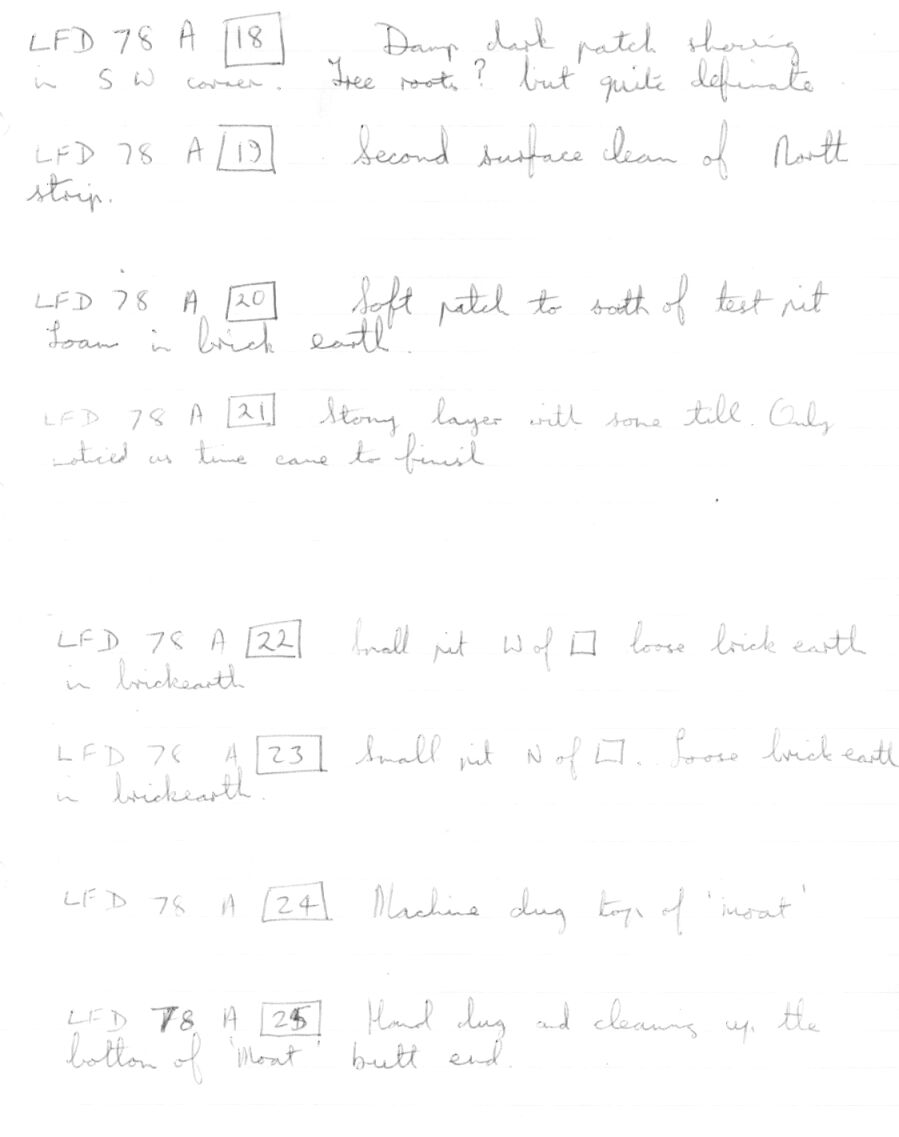 LFD 78 A 18 Damp dark patch showing
in S W corner. Tree roots? but quite definate
LFD 78 A 19 Second surface clean of North
strip.
LFD 78 A 20 Soft patch to south of test pit
Loam in brick earth.
LFD 78 A 21 Stony layer with some till. Only
noticed as time came to finish
LFD 78 A 22 Small pit W of □ loose brick earth
in brickearth
LFD 78 A 23 Small pit N of □. Loose brick earth
in brickearth.
LFD 78 A 24 Machine dug top of 'moat'
LFD 78 A 25 Hand dug and cleaning up the
bottom of 'Moat' butt end.